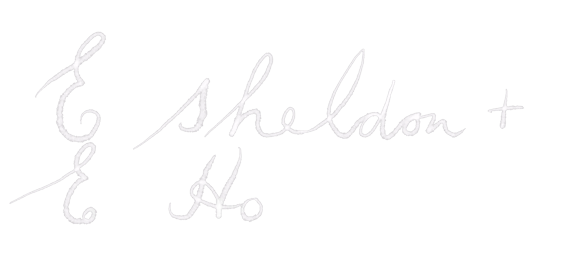 E Sheldon +
E Ho